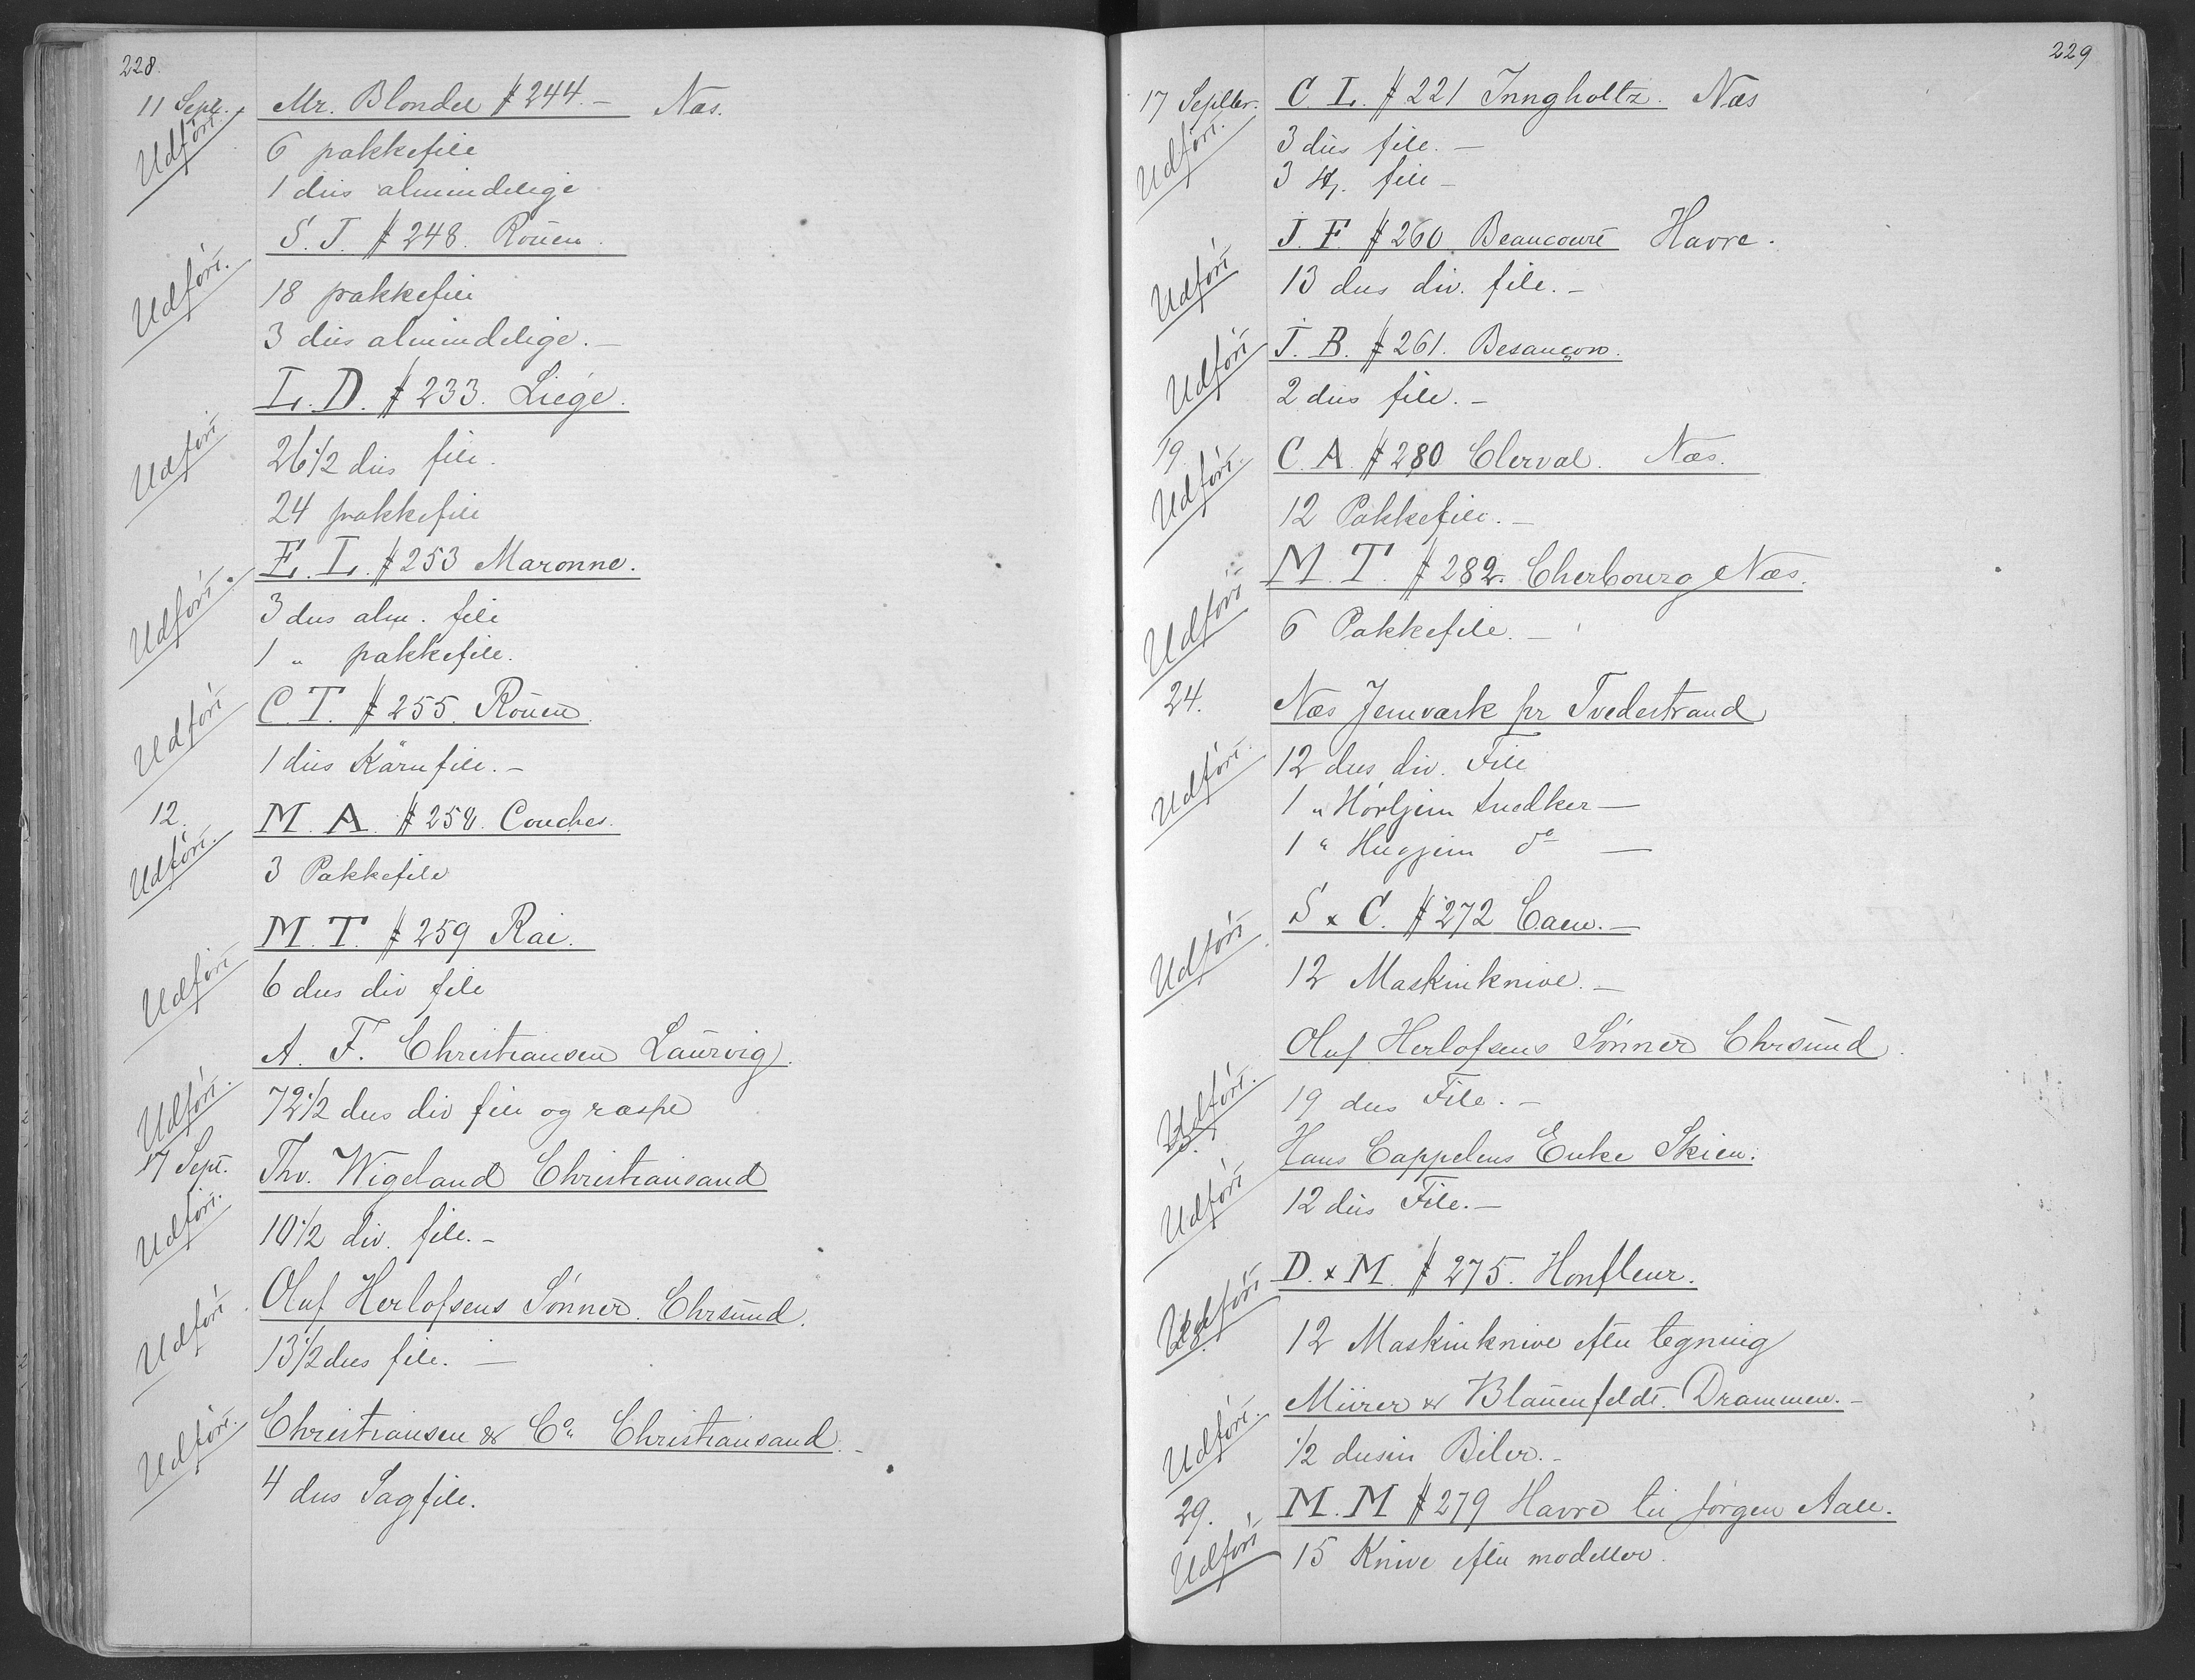 228.
11 Sept. Mr. Blondel # 244. — Næs.
Udført. 6 pakkefile
1 dus almindelige
S. J. # 248. Rouen.
Udført. 18 pakkefile
3 dus almindelige. —
L. D. # 233. Liége.
Udført 26 1/2 dus file.
24 pakkefile
E. L. # 253 Maronne.
Udført. 3 dus alm. file
1 " pakkefile.
C. T. # 255. Rouen.
Udført 1 dus Kärnfile. —
12. M. A. # 258. Conches.
Udført. 3 Pakkefile
M. T. # 259 Rai.
Udført 6 dus div file
A. F. Christiansen Laurvig.
Udført. 72 1/2 dus div file og raspe
17 Sept. Thv. Wigeland Christiansand
Udført. 10 1/2 div. file. —
Oluf Herlofsens Sønner. Chrsund.
Udført 13 1/2 dus file. —
Christiansen & Co. Christiansand. —
Udført. 4 dus Sagfile.
229
17 Septbr. C L. # 221 Inngholtz. Næs
Udført. 3 dus file. —
3 st. file —
J. F # 260 Beaucourt Havre.
Udført 13 dus div. file. —
J. B. # 261. Besançon.
Udført 2 dus file. —
19 C. A. # 280 Clerval. Næs.
Udført. 12 Pakkefile. —
M. T. # 282. Cherbourg Næs.
Udført 6 Pakkefile. —
24. Næs Jernværk pr Tvedestrand
Udført. 12 dus div. File
1 " Hørljern snedker —
1 " Hugjern do —
S & C. # 272 Caen. —
Udført. 12 Maskinknive. —
Oluf Herlofsens Sønner Chrsund.
Udført. 19 dus File. —
Hans Cappelens Enke Skien.
Udført 12 dus File. —
D. & M. # 275. Honfleur.
Udført 12 Maskinknive efter tegning
Mürer & Blauenfeldt. Drammen. —
Udført. 1/2 dusin Biler. —
29. M. M # 279 Havre til Jørgen Aall.
Udført 15 Knive efter modeller.